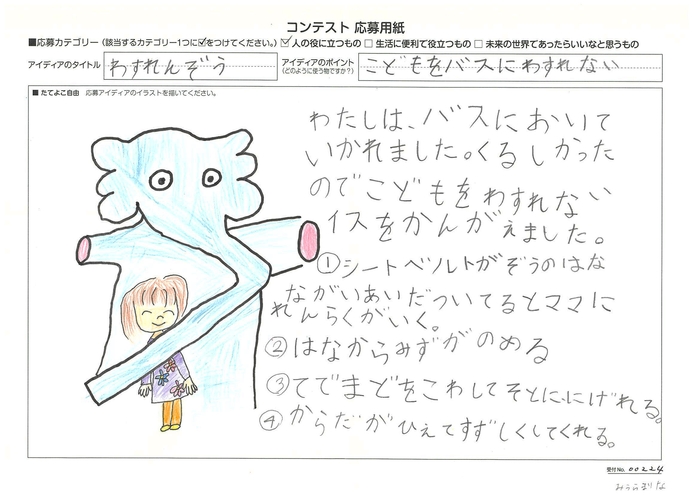 コンテスト 応募用紙
■応募カテゴリー（該当するカテゴリー1つに☑をつけてください。）☑人の役に立つもの □生活に便利で役立つもの □未来の世界であったらいいなと思うもの
アイディアのタイトル わすれんぞう
アイディアのポイント（どのように使う物ですか？） こどもをバスにわすれない
■たてよこ自由 応募アイディアのイラストを描いてください。
わたしは、バスにおいて
いかれました。くるしかった
のでこどもをわすれない
イスをかんがえました。
①シートベルトがぞうのはな
ながいあいだついてるとママに
れんらくがいく。
②はなからみずがのめる
③てでまどをこわしてそとににげれる。
④からだがひえてすずしくしてくれる。
受付No. 00224